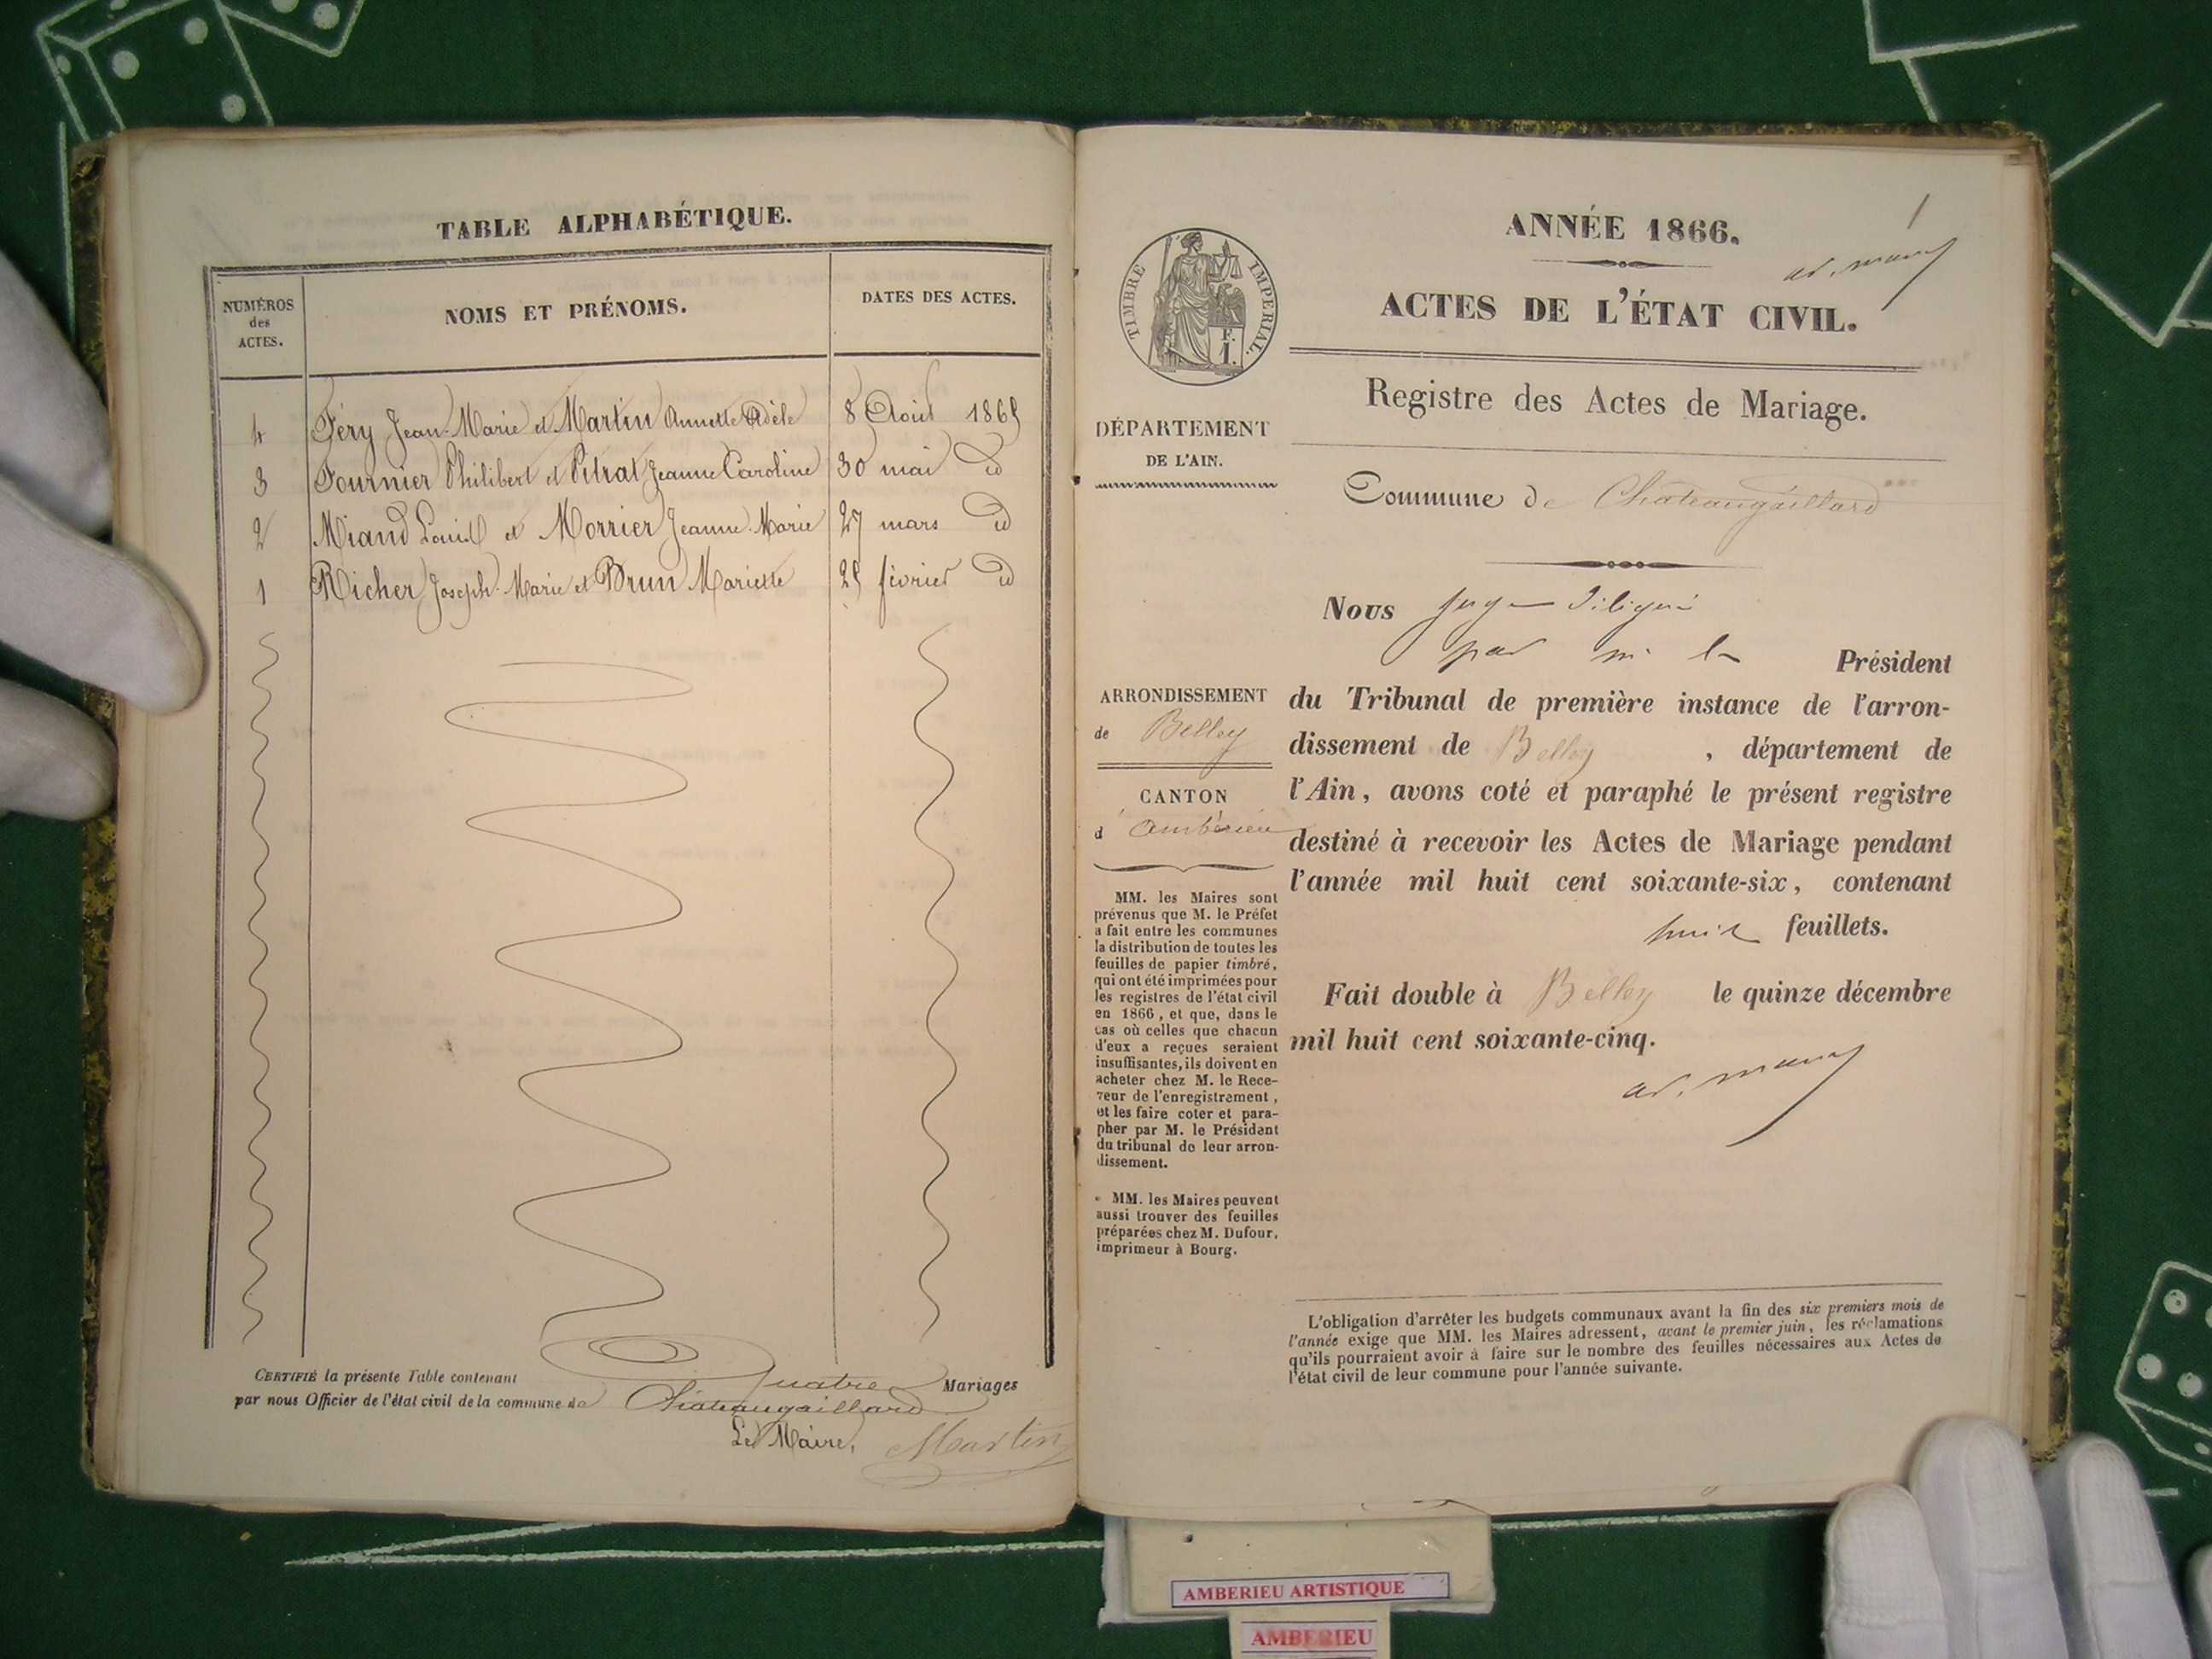 TABLE ALPHABÉTIQUE.
NUMÉROS
des
ACTES.
NOMS ET PRÉNOMS.
DATES DES ACTES.
4 Féry Jean-Marie et Martin Annette Adèle 8 Août 1865
3 Fournier Philibert et Pitrat Jeanne Caroline 30 mai id
2 Miand Louis et Morrier Jeanne-Marie 27 mars id
1 Richer Joseph-Marie et Brun Mariette 25 février id
CERTIFIÉ la présente Table contenant Quatre Mariages
par nous Officier de l'état civil de la commune de Châteaugaillard
Le Maire, Martin
1
ANNÉE 1866.
TIMBRE IMPERIAL.
F.
1.
ACTES DE L'ÉTAT CIVIL.
Registre des Actes de Mariage.
DÉPARTEMENT
DE L'AIN.
Commune de Châteaugaillard
ARRONDISSEMENT
de Belley
CANTON
d'Ambérieu
MM. les Maires sont
prévenus que M. le Préfet
a fait entre les communes
la distribution de toutes les
feuilles de papier timbré,
qui ont été imprimées pour
les registres de l'état civil
en 1866, et que, dans le
cas où celles que chacun
d'eux a reçues seraient
insuffisantes, ils doivent en
acheter chez M. le Rece-
veur de l'enregistrement,
et les faire coter et para-
pher par M. le Président
du tribunal de leur arron-
dissement.
MM. les Maires peuvent
aussi trouver des feuilles
préparées chez M. Dufour,
imprimeur à Bourg.
Nous juge délégué
par m. le Président
du Tribunal de première instance de l'arron-
dissement de Belley, département de
l'Ain, avons coté et paraphé le présent registre
destiné à recevoir les Actes de Mariage pendant
l'année mil huit cent soixante-six, contenant
huit feuillets.
Fait double à Belley le quinze décembre
mil huit cent soixante-cinq.
L'obligation d'arrêter les budgets communaux avant la fin des six premiers mois de
l'année exige que MM. les Maires adressent, avant le premier juin, les réclamations
qu'ils pourraient avoir à faire sur le nombre des feuilles nécessaires aux Actes de
l'état civil de leur commune pour l'année suivante.
AMBERIEU ARTISTIQUE
AMBERIEU